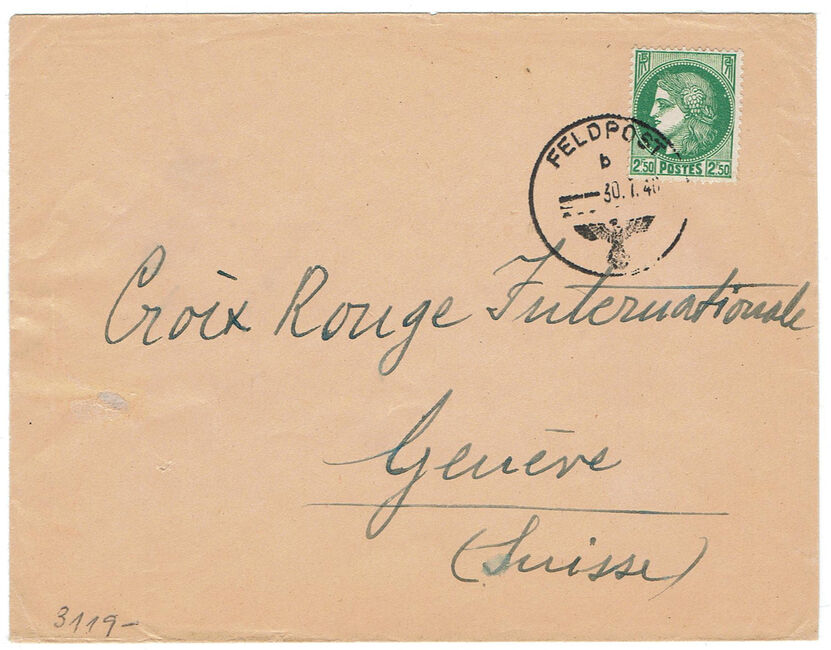 RF
FELDPOST
b
30.7.40
2F50 POSTES 2F50
Croix Rouge Internationale
Genève
(Suisse)
3119-